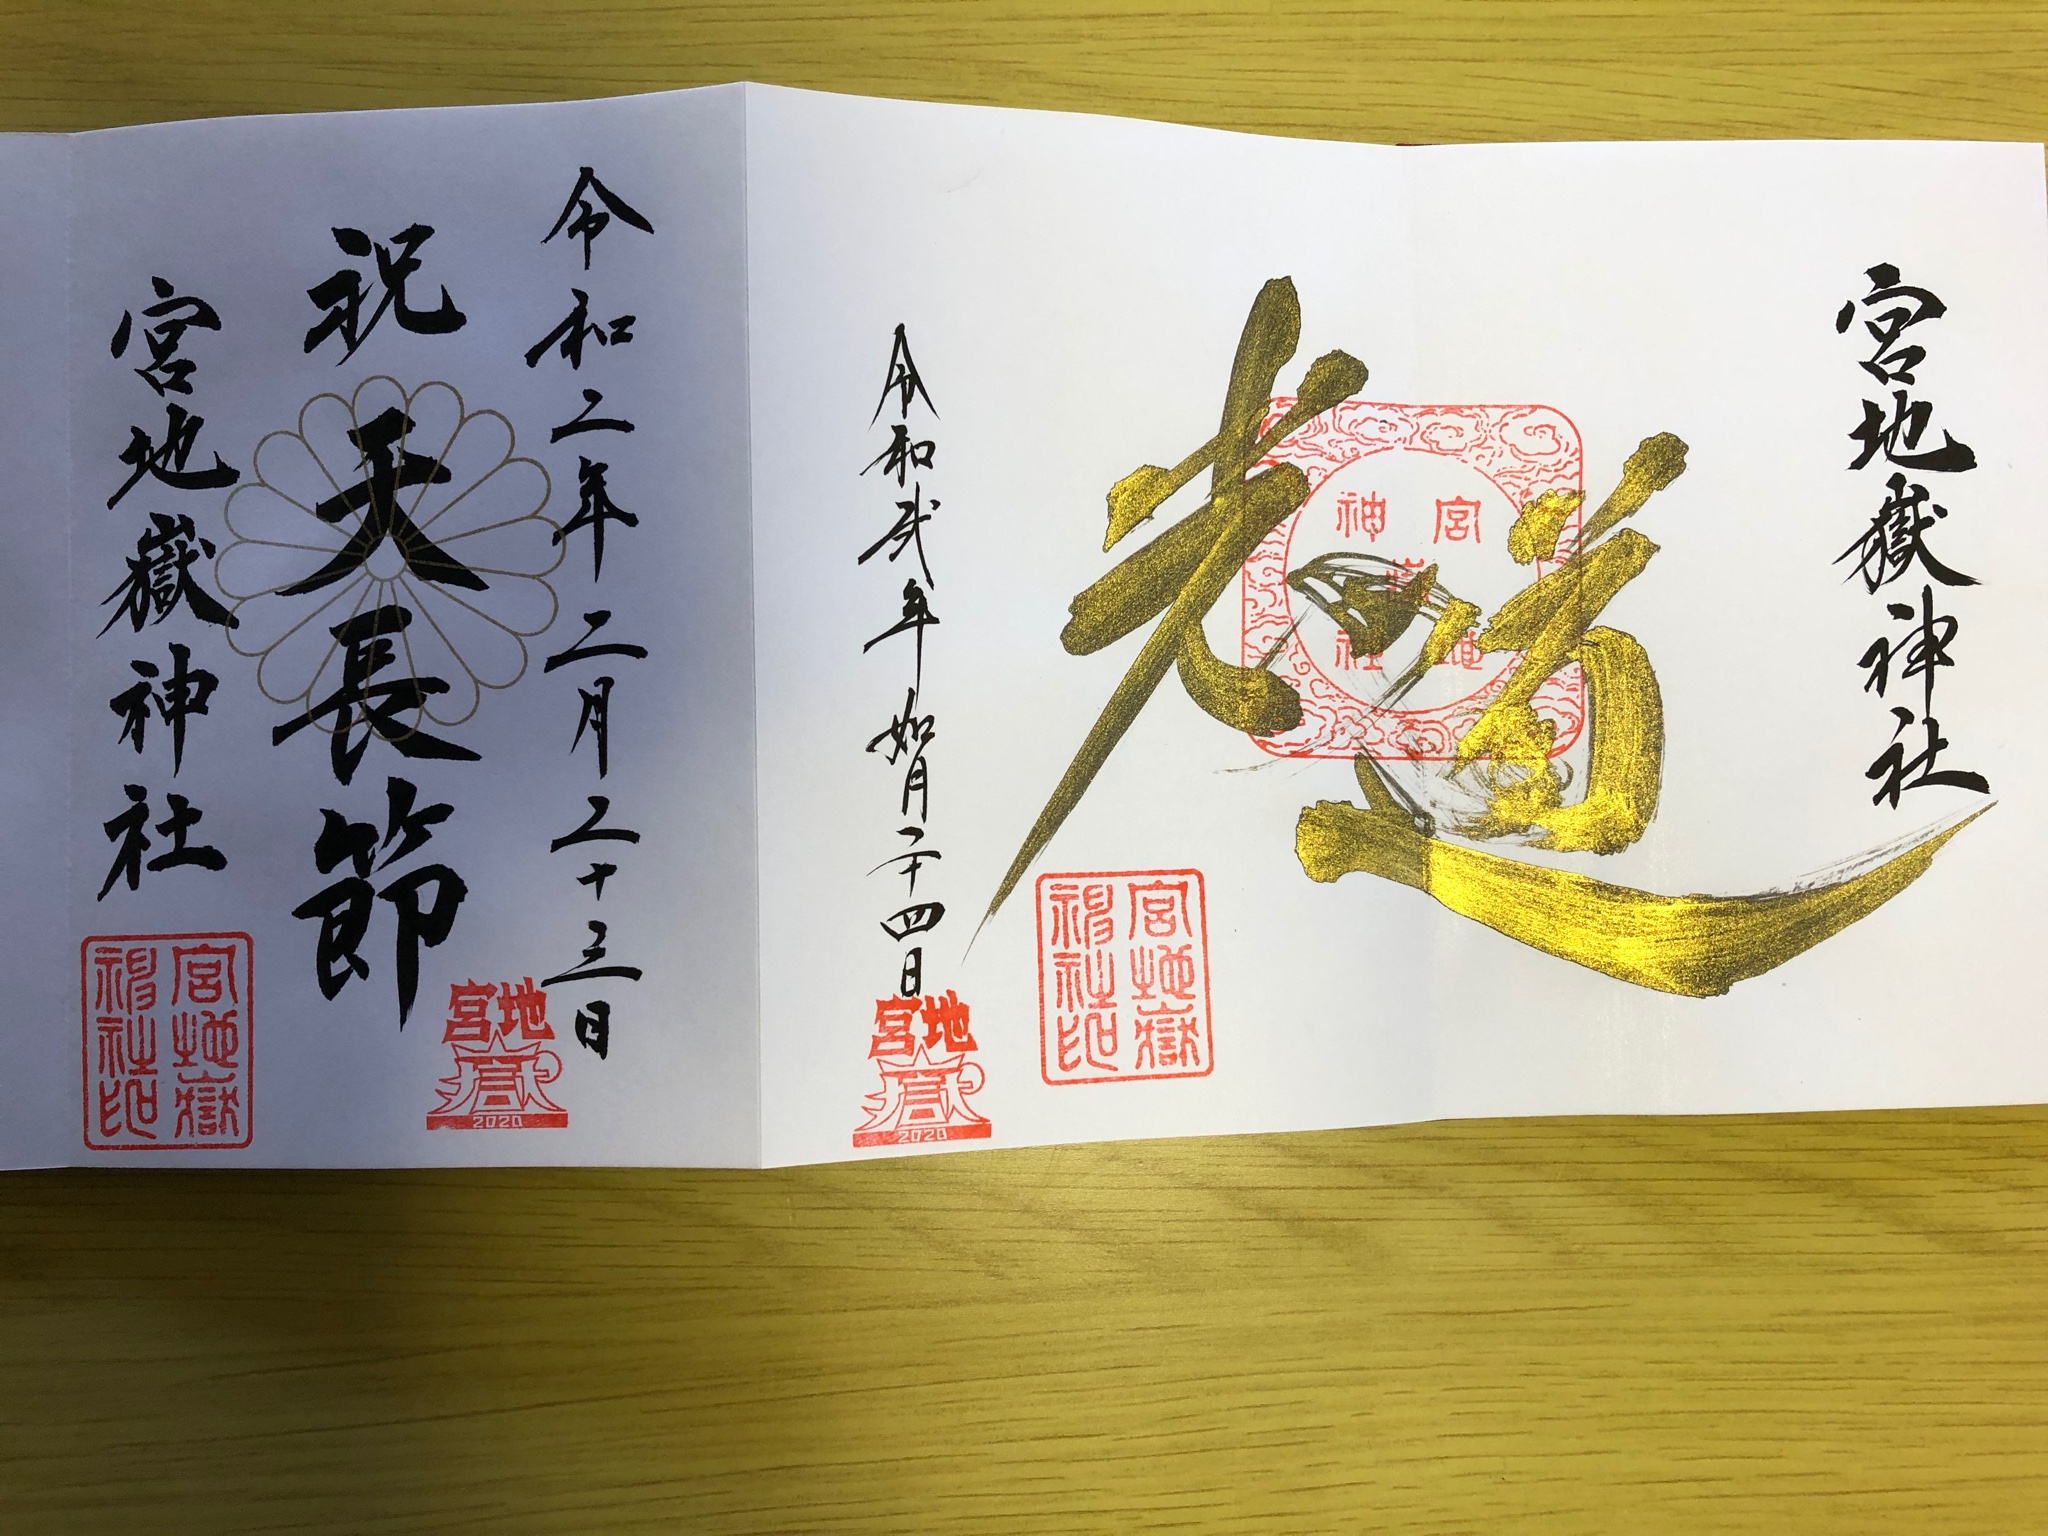 宮地嶽神社
光道
宮地嶽神社
令和弐年如月二十四日
宮地嶽神社印
宮地嶽
2020
令和二年二月二十三日
祝天長節
宮地嶽神社
宮地嶽神社印
宮地嶽
2020